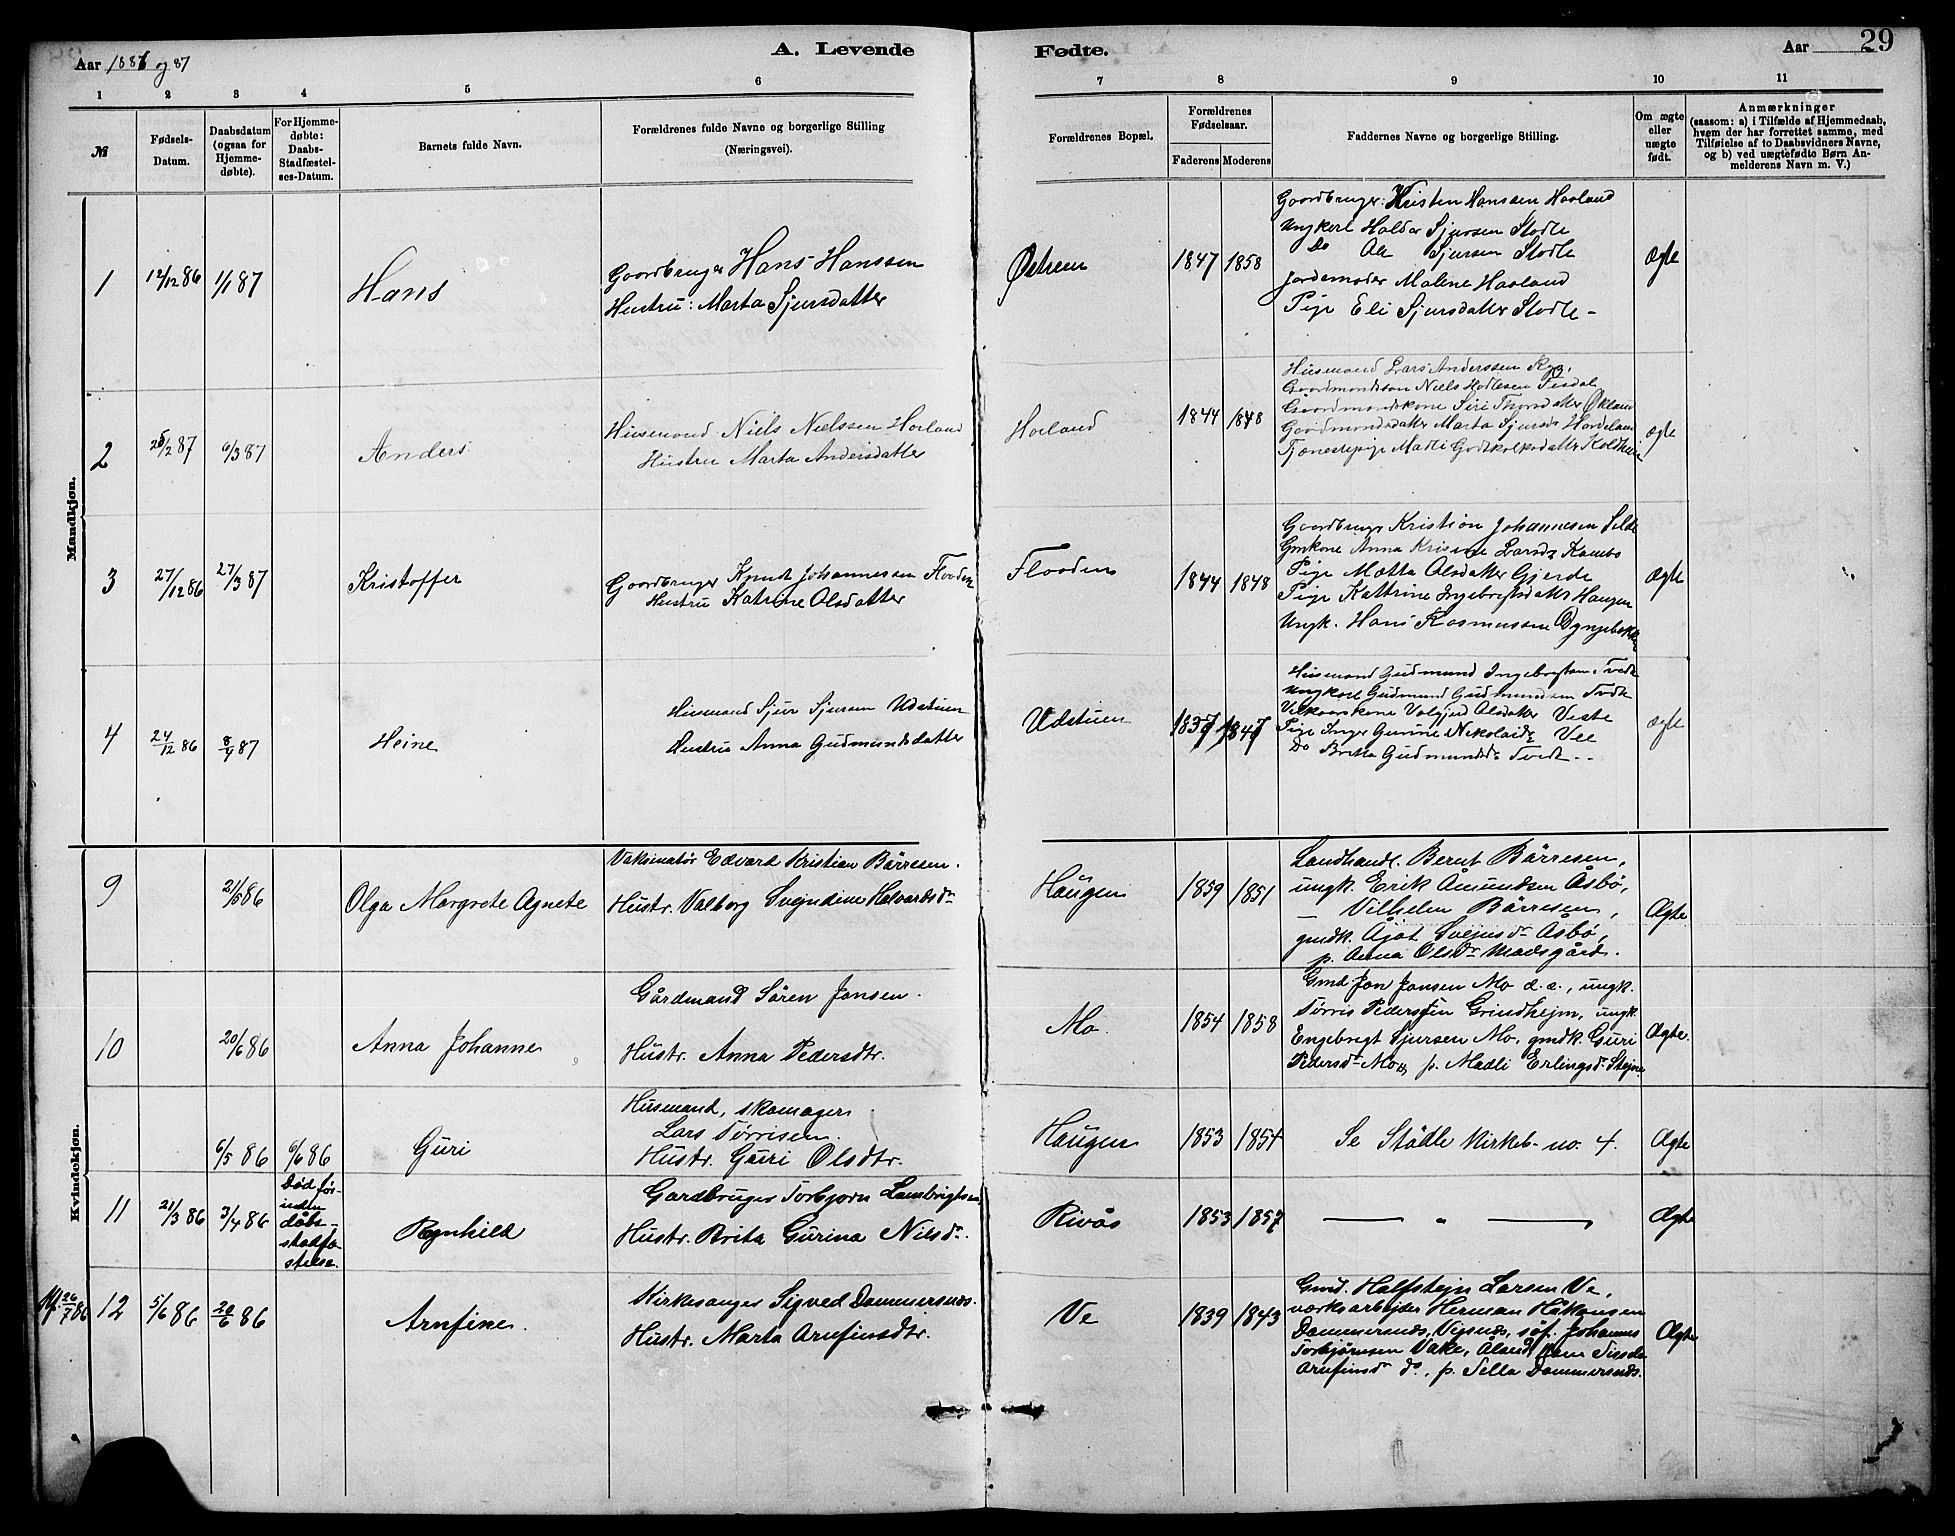 Aar 1886 og 87
A. Levende
Fødte.
Aar
29
1 2 3 4 5 6 7 8 9 10 11
№
Fødsels-Datum.
Daabsdatum (ogsaa for Hjemmedøbte).
For Hjemmedøbte: Daabs-Stadfæstelses-Datum.
Barnets fulde Navn.
Forældrenes fulde Navne og borgerlige Stilling (Næringsvei).
Forældrenes Bopæl.
Forældrenes Fødselsaar.
Faderens Moderens
Faddernes Navne og borgerlige Stilling.
Om ægte eller uægte født.
Anmærkninger
(saasom: a) i Tilfælde af Hjemmedaab,
hvem der har forrettet samme, med
Tilføielse af to Daabsvidners Navne,
og b) ved uægtefødte Børn Anmelderens Navn m. V.)
Mandkjøn.
1 12/12 86 1/1 87 Hans
Gaardbruger Hans Hanssen
Hustru: Marta Sjursdatter
Østrem 1847 1858
Gaardbruger: Kristen Hanssen Haaland
Ungkarl Haldor Sjursen Stødle
Do Ole Sjursen Stødle
Jordemoder Malene Haaland
Pige Eli Sjursdatter Stødle -
Ægte
2 25/2 87 6/3 87 Anders
Husmand Niels Nielssen Høiland
Hustru Marta Andersdatter
Høiland 1844 1848
Husmand Lars Anderssen
Gaardmandssøn Niels
Gaardmandskone Siri Thorsdatter Økland
Gaardmandsdatter Marta Sjursd
Tjenestepige Madli
ægte
3 27/12 86 27/3 87 Kristoffer
Gaardbruger Knud Johannessen Flooden
Hustru Katrine Olsdatter
Flooden 1844 1848
Gaardbruger Kristian Johannesen Silde
Gmkone Anna Kristine Larsd. Kambo
Pige Mætta Olsdatter Gjerde
Pige Kattrine Ingebrigtsdatter Haugen
Ungk. Hans Rasmussen
Ægte
4 24/12 86 8/4 87 Heine
Husmand Sjur Sjursen Udstuen
Hustru Anna Gudmundsdatter
Udstuen 1837 1847
Husmand Gudmund Ingebrigtsen Tvedt
Ungkarl Gudmund Gudmundsen Tvedt
Vilkaarskone Valgjerd Olsdatter Veste
Pige Inger Gurine Nikolaid. Vee
Do Britta Gudmundsd. Tvedt --
ægte
Kvindekjøn.
9 21/5 86 Olga Margrete Agnete
Vaksinatør Edvard Kristian Børresen.
Hustr. Valborg Svejndine Halvardsdr
Haugen 1859 1851
Landhandl. Bernt Børresen,
ungk. Erik Åmundsen Åsbø,
— Vilhelm Børresen,
gmdk. Ajot Svejnsdr Åsbø,
p. Anna Olsdr Madsgård.
Ægte
10 20/6 86 Anna Johanne
Gårdmand Søren Jonsen.
Hustr. Anna Pedersdtr.
Mo. 1854 1858
Gmd Jon Jonsen Mo d. æ., ungk.
Tørris Pedersen Grindhejm, ungk.
Engebregt Sjursen Mo, gmdk. Guri
Pedersdr Mo, p. Madli Erlingsdr Stejne
Ægte.
6/5 86 6/6 86 Guri
Husmand, skomager
Lars Tørrisen.
Hustr. Guri Olsdtr.
Haugen 1853 1854
Se Stødle Kirkeb. no. 4.
Ægte
11 21/3 86 3/4 86
Død før-
uden
dåbs-
stadfæ-
stelse.
Ragnhild
Gardbruger Torbjørn Lambrigtsen
Hustr. Brita Gurina Nilsdr.
Rivås 1853 1857
— " —
Ægte
26/7 86 12 5/6 86 20/6 86 Arnfine.
Kirkesanger Sigved Dommersnæs.
Hustr. Marta Arnfinsdtr.
Ve 1839 1843
Gmd. Halfstejn Larsen Ve,
værksarbejder Herman Håkonsen
Dommersnæs, Vigsnæs, søf. Johannes
Torbjørnsen Vake, Åland
Arnfinsdr do, p. Sella Dommersnæs.
Ægte